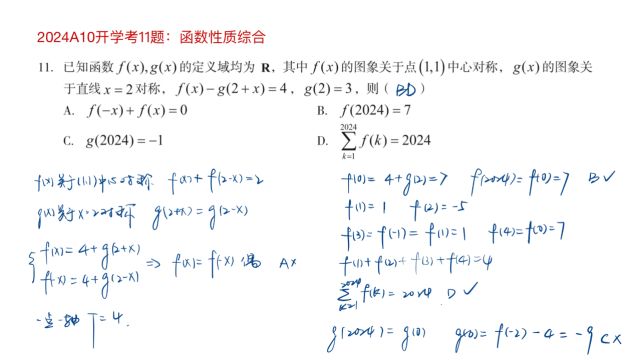 2024A10开学考11题：函数性质综合
11. 已知函数 f(x), g(x) 的定义域均为 R，其中 f(x) 的图象关于点 (1,1) 中心对称，g(x) 的图象关
于直线 x = 2 对称，f(x) − g(2 + x) = 4，g(2) = 3，则（ BD ）
A. f(−x) + f(x) = 0
B. f(2024) = 7
C. g(2024) = −1
D. ∑_{k=1}^{2024} f(k) = 2024
f(x)关于(1,1)中心对称 f(x) + f(2-x) = 2
g(x)关于x=2对称 g(2+x) = g(2-x)
{ f(x) = 4 + g(2+x)
f(-x) = 4 + g(2-x) ⇒ f(x) = f(-x) 偶 A×
一点一轴 T = 4.
f(0) = 4 + g(2) = 7 f(2024) = f(0) = 7 B✓
f(1) = 1 f(2) = -5
f(3) = f(-1) = f(1) = 1 f(4) = f(0) = 7
f(1) + f(2) + f(3) + f(4) = 4
∑_{k=1}^{2024} f(k) = 2024 D✓
g(2024) = g(0) g(0) = f(-2) - 4 = -9 C×